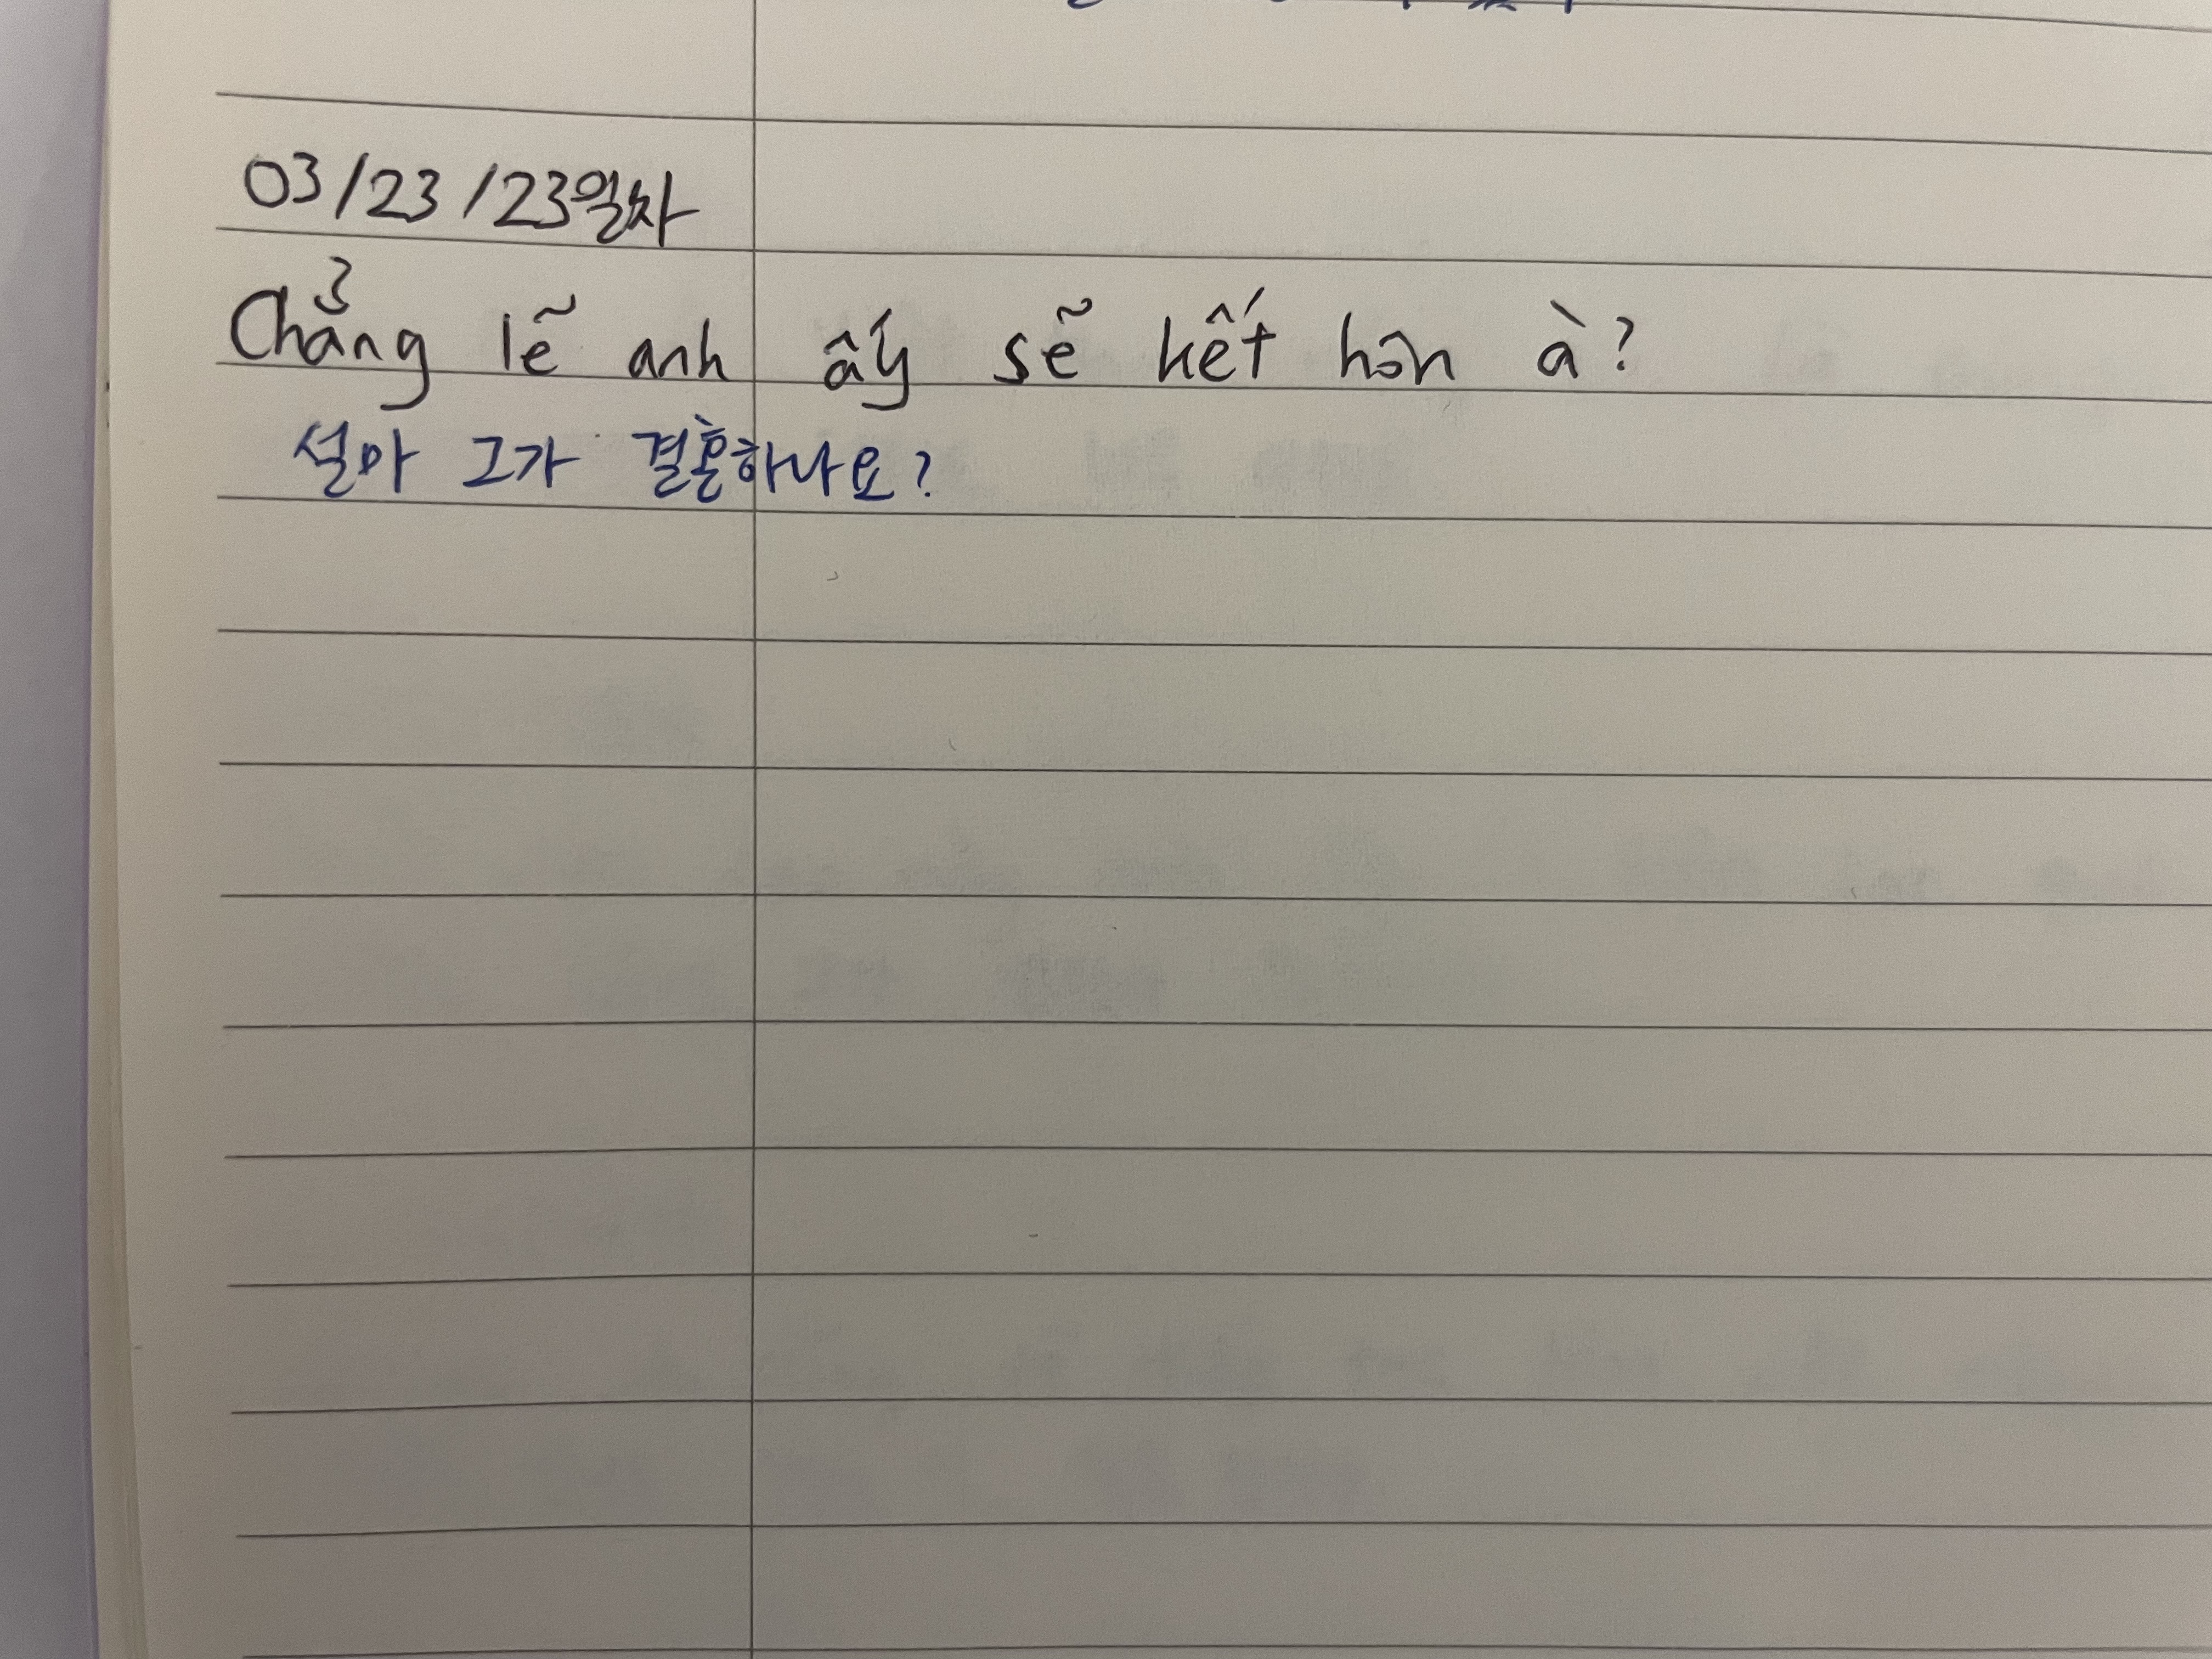 03/23/23일차
Chẳng lẽ anh ấy sẽ kết hôn à?
설마 그가 결혼하나요?